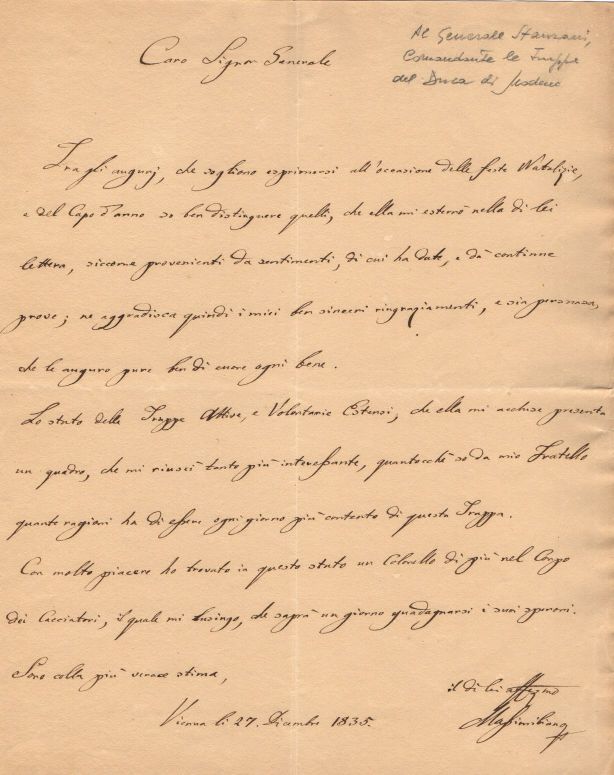 Al Generale Stanzani,
Comandante le Truppe
del Duca di Modena
Caro Signor Generale
Tra gli augurj, che sogliono esprimersi all'occasione delle feste Natalizie,
e del Capo d'anno so ben distinguere quelli, che ella mi esternò nella di lei
lettera, siccome provenienti da sentimenti, di cui ha date, e dà continue
prove; ne aggradisca quindi i miei ben sinceri ringraziamenti, e sia persuasa,
che le auguro pure ben di cuore ogni bene.
Lo stato delle Truppe Attive, e Volontarie Estensi, che ella mi accluse presenta
un quadro, che mi riuscì tanto più interessante, quantocchè so da mio Fratello
quante ragioni ha di essere ogni giorno più contento di questa Truppa.
Con molto piacere ho trovato in questo stato un Colonello di più nel Corpo
dei Cacciatori, il quale mi lusingo, che saprà un giorno guadagnarsi i suoi speroni.
Sono colla più verace stima,
il di lei affezmo
Vienna li 27. Dicembre 1835.
Massimiliano